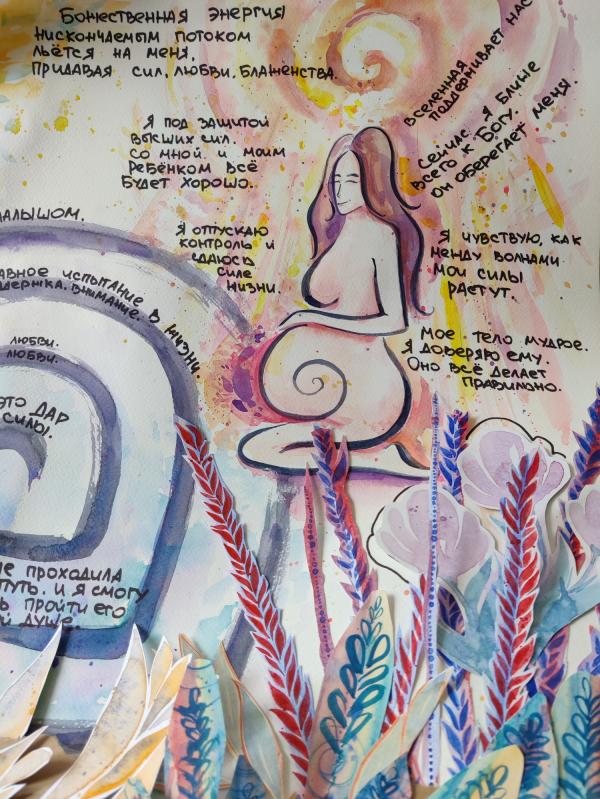 Божественная энергия
нискончаемым потоком
льётся на меня,
придавая сил, любви, блаженства.
Вселенная
поддерживает нас
Сейчас я ближе
всего к Богу.
Он оберегает меня.
Я под защитой
высших сил.
Со мной и моим
ребёнком всё
будет хорошо.
малышом.
Я отпускаю
контроль и
сдаюсь
силе
жизни.
Я чувствую, как
между волнами
мои силы
растут.
главное испытание в жизни.
внимание.
любви.
любви.
Моё тело мудрое.
Я доверяю ему.
Оно всё делает
правильно.
это дар
силы.
не проходила
путь. И я смогу
пройти его
душе.